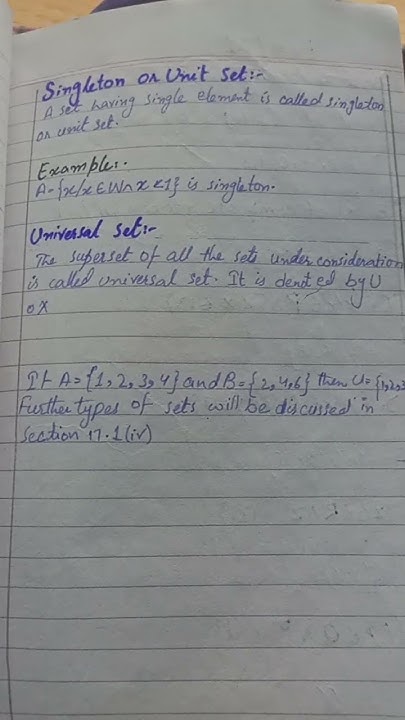 Singleton or Unit Set:-
A set having single element is called singleton
or unit set.
Example:.
A={x/x ∈ W ∧ x <1} is singleton.
Universal set:-
The superset of all the sets under consideration
is called universal set. It is denoted by U
or X
If A={1,2,3,4} and B={2,4,6} then U={1,2,3
Further types of sets will be discussed in
section 17.1(iv)